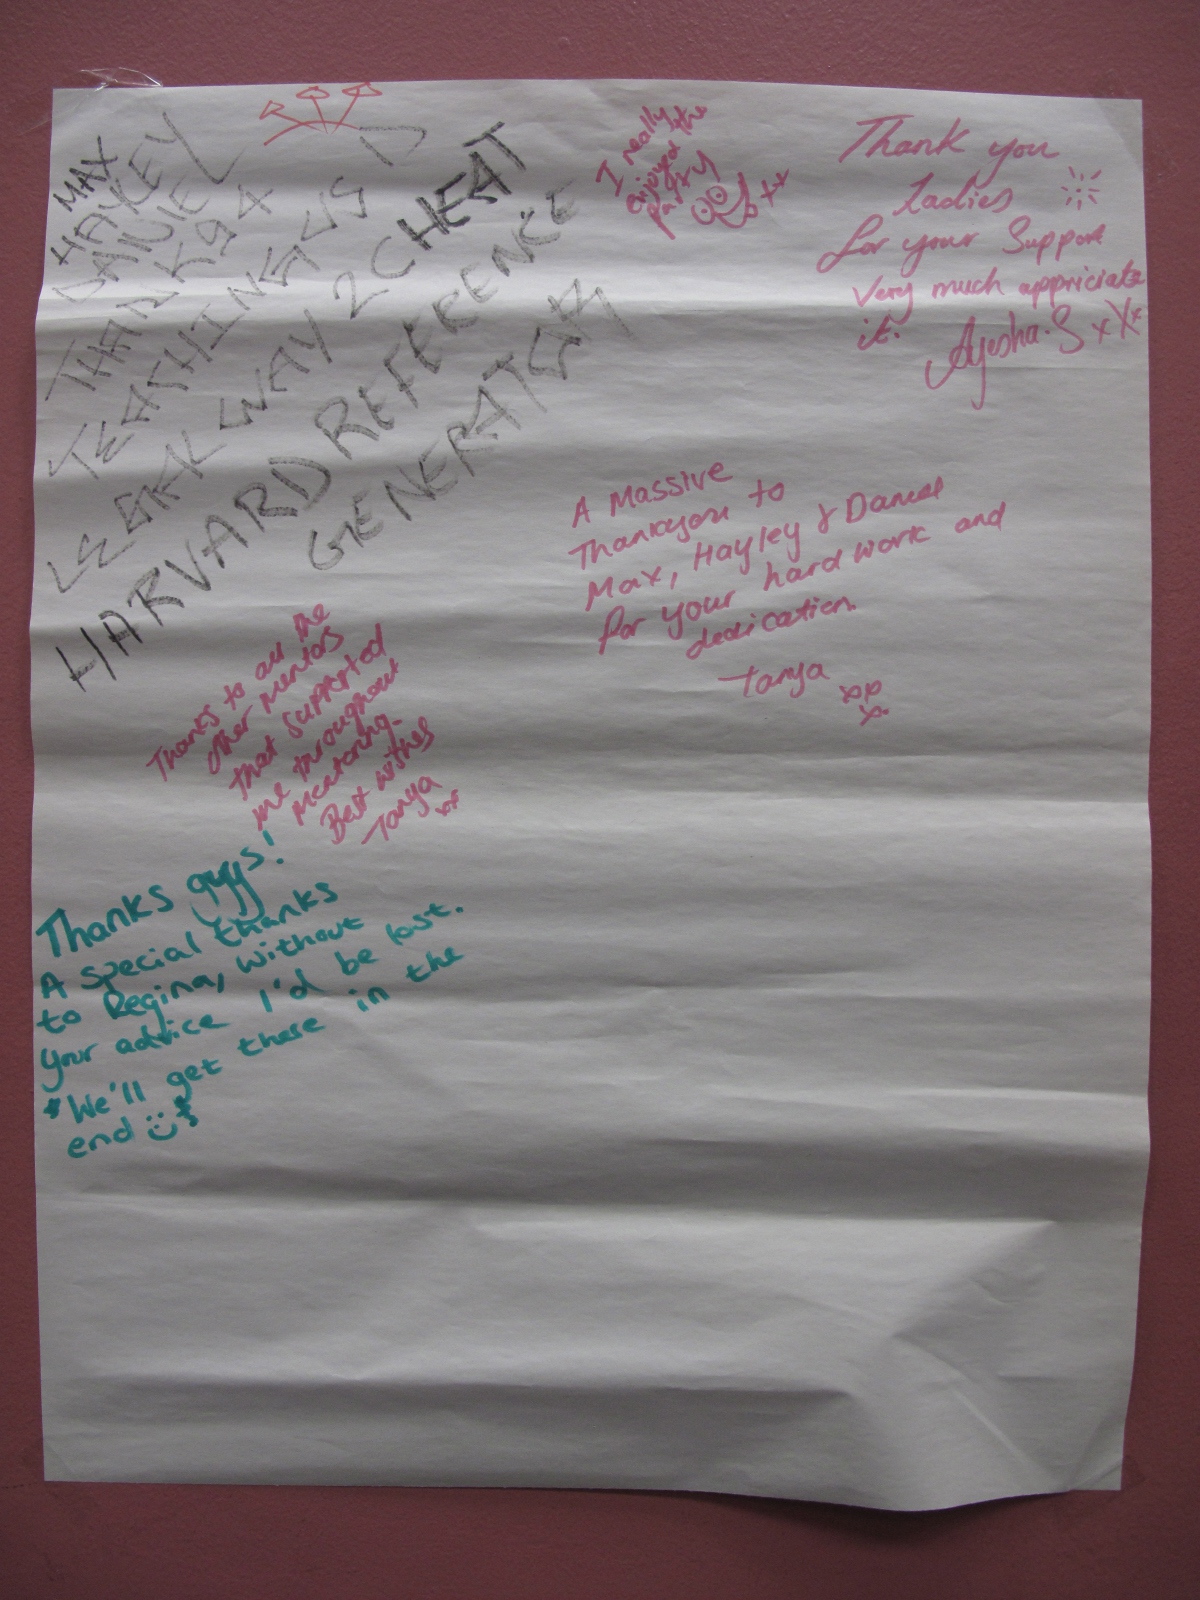 MAX
HAYLEY
DANIEL
THANKS 4
TEACHING US D
LEGAL WAY 2 CHEAT
HARVARD REFERENCE
GENERATOR
I really
enjoyed the
party
xx
Thank you
Ladies
for your Support
Very much appriciate
it.
Ayesha.S xXx
A Massive
Thankyou to
Max, Hayley & Daniel
for your hard work and
dedication.
Tanya
Thanks to all the
other mentors
that supported
me throughout
mentoring.
Best wishes
Tanya
xx
Thanks guys!
A special thanks
to Regina, without
your advice I'd be lost.
*We'll get there in the
end :)*